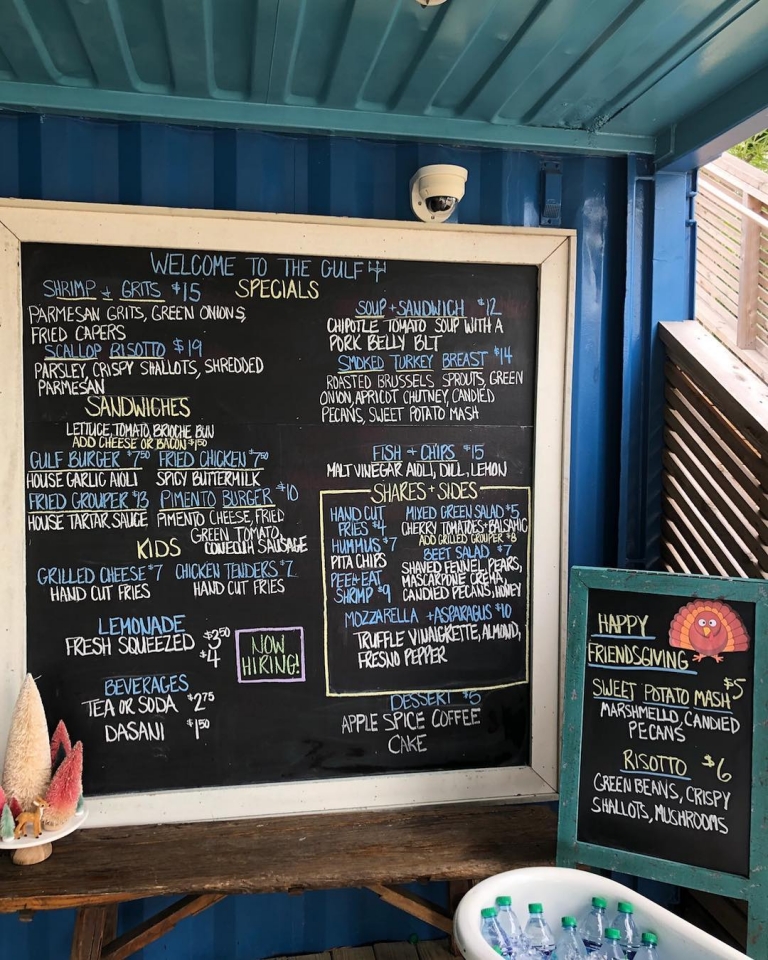 WELCOME TO THE GULF
SPECIALS
SHRIMP + GRITS $15
PARMESAN GRITS, GREEN ONIONS,
FRIED CAPERS
SCALLOP RISOTTO $19
PARSLEY, CRISPY SHALLOTS, SHREDDED
PARMESAN
SOUP + SANDWICH $12
CHIPOTLE TOMATO SOUP WITH A
PORK BELLY BLT
SMOKED TURKEY BREAST $14
ROASTED BRUSSELS SPROUTS, GREEN
ONION, APRICOT CHUTNEY, CANDIED
PECANS, SWEET POTATO MASH
SANDWICHES
LETTUCE, TOMATO, BRIOCHE BUN
ADD CHEESE OR BACON $1.50
GULF BURGER $7.50
HOUSE GARLIC AIOLI
FRIED CHICKEN $7.50
SPICY BUTTERMILK
FRIED GROUPER $13
HOUSE TARTAR SAUCE
PIMENTO BURGER $10
PIMENTO CHEESE, FRIED
GREEN TOMATO,
CONECUH SAUSAGE
KIDS
GRILLED CHEESE $7
HAND CUT FRIES
CHICKEN TENDERS $7
HAND CUT FRIES
LEMONADE
FRESH SQUEEZED $3.50
$4
NOW
HIRING!
BEVERAGES
TEA OR SODA $2.75
DASANI $1.50
FISH + CHIPS $15
MALT VINEGAR AIOLI, DILL, LEMON
SHARES + SIDES
HAND CUT
FRIES $4
HUMMUS $7
PITA CHIPS
PEEL+EAT
SHRIMP $9
MIXED GREEN SALAD $5
CHERRY TOMATOES+BALSAMIC
ADD GRILLED GROUPER $8
BEET SALAD $7
SHAVED FENNEL, PEARS,
MASCARPONE CREMA,
CANDIED PECANS, HONEY
MOZZARELLA + ASPARAGUS $10
TRUFFLE VINAIGRETTE, ALMOND,
FRESNO PEPPER
DESSERT $5
APPLE SPICE COFFEE
CAKE
HAPPY
FRIENDSGIVING
SWEET POTATO MASH $5
MARSHMELLO, CANDIED
PECANS
RISOTTO $6
GREEN BEANS, CRISPY
SHALLOTS, MUSHROOMS